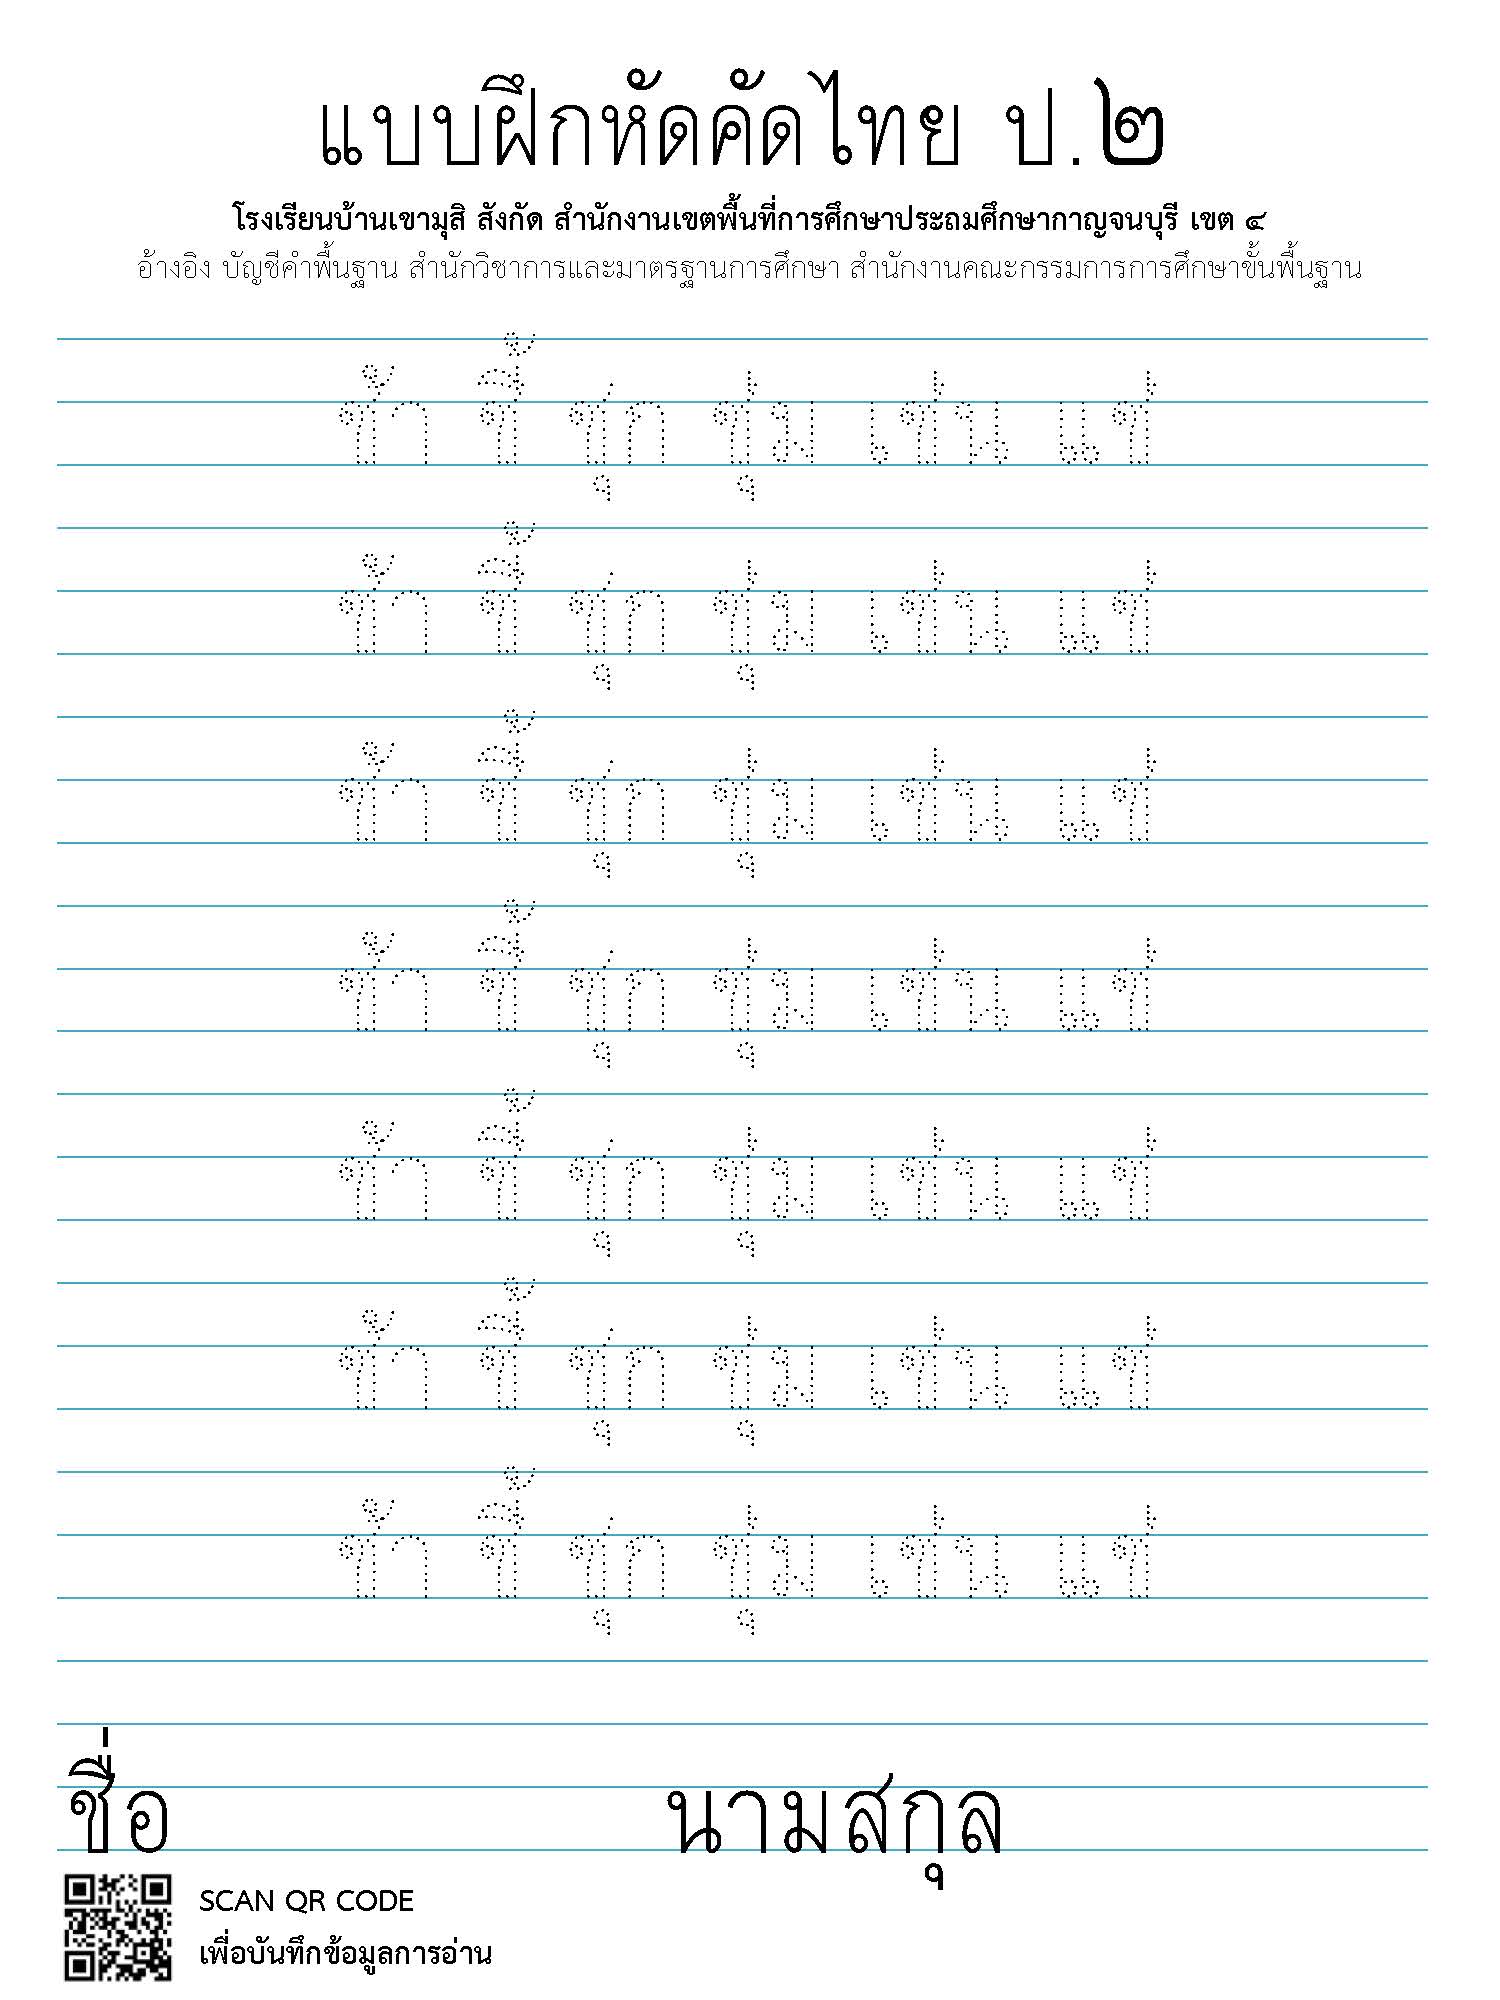 แบบฝึกหัดคัดไทย ป.๒
โรงเรียนบ้านเขามุสิ สังกัด สำนักงานเขตพื้นที่การศึกษาประถมศึกษากาญจนบุรี เขต ๔
อ้างอิง บัญชีคำพื้นฐาน สำนักวิชาการและมาตรฐานการศึกษา สำนักงานคณะกรรมการการศึกษาขั้นพื้นฐาน
ช้า ชี้ ชุก ชุ่ม เช่น แช่
ช้า ชี้ ชุก ชุ่ม เช่น แช่
ช้า ชี้ ชุก ชุ่ม เช่น แช่
ช้า ชี้ ชุก ชุ่ม เช่น แช่
ช้า ชี้ ชุก ชุ่ม เช่น แช่
ช้า ชี้ ชุก ชุ่ม เช่น แช่
ช้า ชี้ ชุก ชุ่ม เช่น แช่
ชื่อ นามสกุล
SCAN QR CODE
เพื่อบันทึกข้อมูลการอ่าน